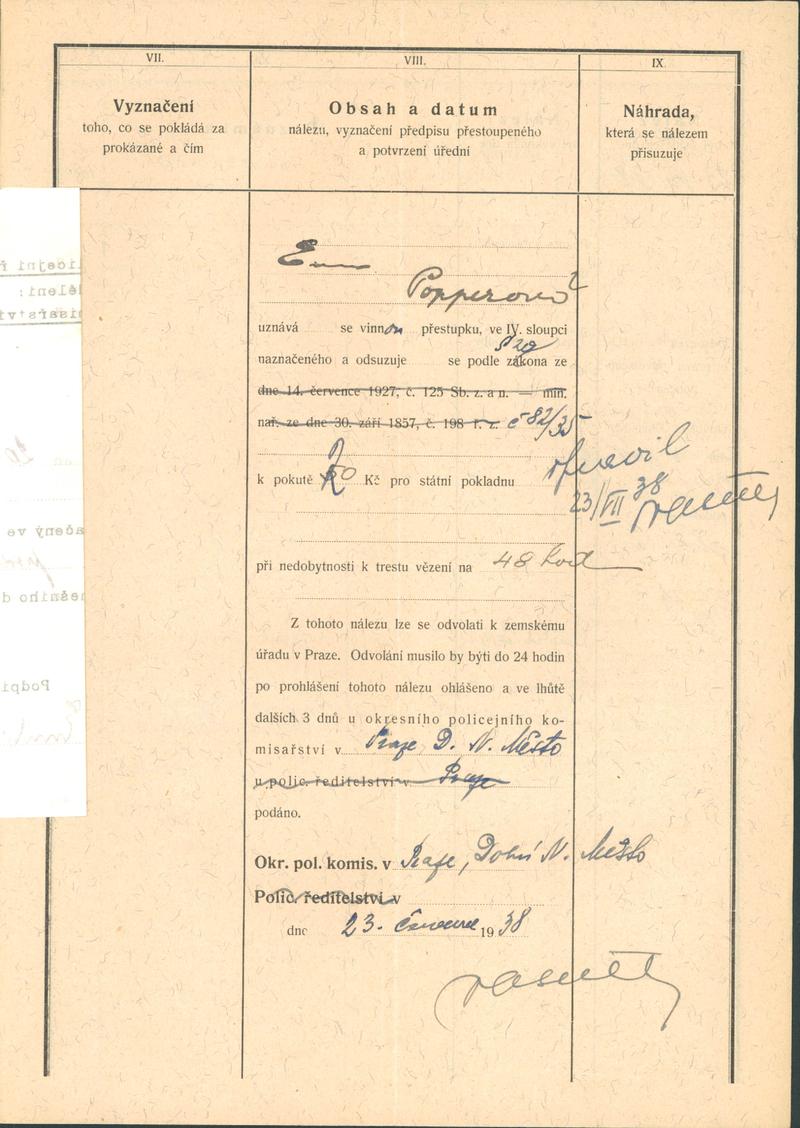 VII.
VIII.
IX.
Vyznačení
toho, co se pokládá za
prokázané a čím
Obsah a datum
nálezu, vyznačení předpisu přestoupeného
a potvrzení úřední
Náhrada,
která se nálezem
přisuzuje
Popperová
uznává se vinnou přestupku, ve IV. sloupci
§ 20
naznačeného a odsuzuje se podle zákona ze
dne 14. července 1927, č. 125 Sb. z. a n. — min.
nař. ze dne 30. září 1857, č. 198 ř. z. č 82/35
k pokutě Kč pro státní pokladnu
23/VII 38
při nedobytnosti k trestu vězení na 48 hod
Z tohoto nálezu lze se odvolati k zemskému
úřadu v Praze. Odvolání musilo by býti do 24 hodin
po prohlášení tohoto nálezu ohlášeno a ve lhůtě
dalších 3 dnů u okresního policejního ko-
misařství v Praze D. N. Město
u polic. ředitelství v Praze
podáno.
Okr. pol. komis. v Praze, Dolní N. Město
Polic. ředitelství v
dne 23. července 1938
licejní ř
ělení:
isařství
20
ačený ve
nešního d
Podpi